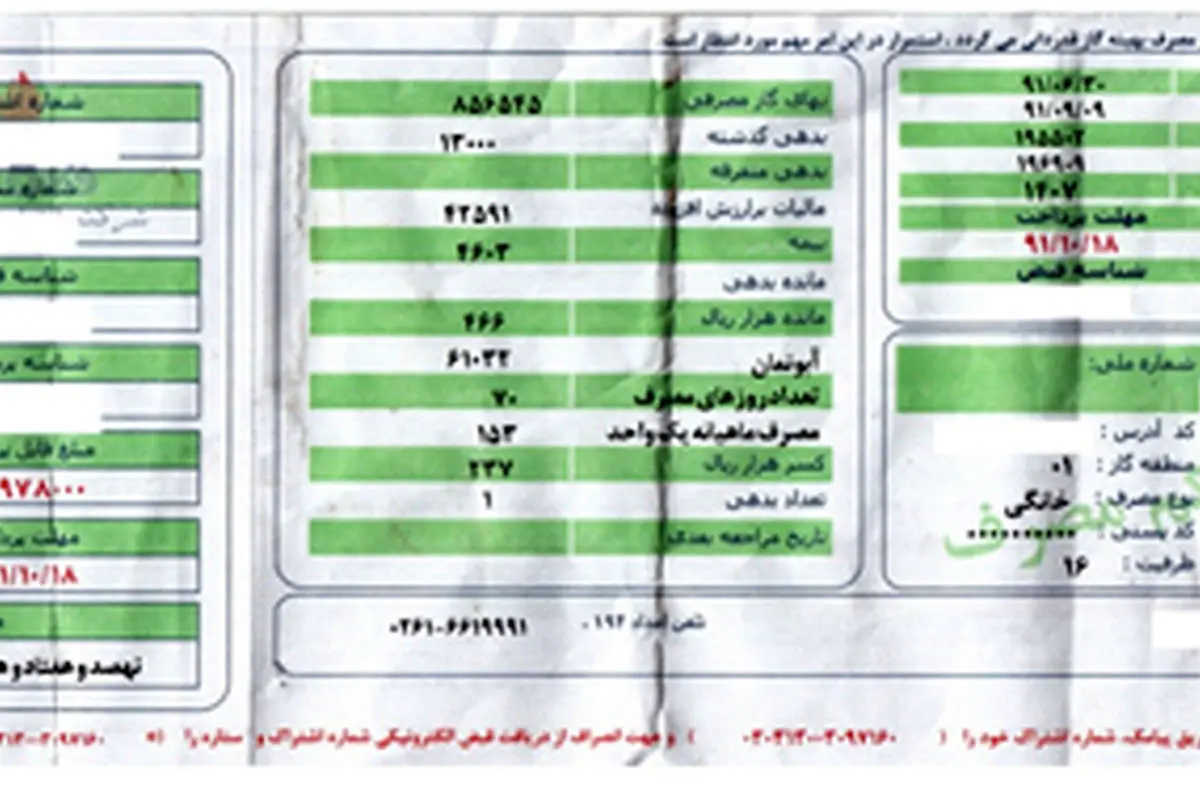 مصرف بهینه گاز قدردانی می گردد، استمرار در این امر مهم مورد انتظار است
۹۱/۰۶/۳۰
۹۱/۰۹/۰۹
۱۹۵۵۰۲
۱۹۶۹۰۹
۱۴۰۷
مهلت پرداخت
۹۱/۱۰/۱۸
شناسه قبض
شماره ملی:
کد آدرس :
منطقه گاز : ۰۱
نوع مصرف : خانگی
کد پستی : ۰۰۰۰۰۰۰۰۰۰
ظرفیت : ۱۶
بهای گاز مصرفی ۸۵۶۵۴۵
بدهی گذشته ۱۳۰۰۰
بدهی متفرقه
مالیات برارزش افزوده ۴۳۵۹۱
بیمه ۴۶۰۳
مانده بدهی
مانده هزار ریال ۴۶۶
آبونمان ۶۱۰۳۲
تعدادروزهای مصرف ۷۰
مصرف ماهیانه یک واحد ۱۵۳
کسر هزار ریال ۲۳۷
تعداد بدهی ۱
تاریخ مراجعه بعدی
تلفن امداد ۱۹۴ ، ۰۲۶۱-۶۶۱۹۹۹۱
شماره
شماره
شرکت
شناسه
شناسه
مبلغ قابل
۹۷۸۰۰۰
مهلت
۱/۱۰/۱۸
نهصد و هفتاد و
پیامک، شماره اشتراک خود را ( ) و جهت انصراف از دریافت قبض الکترونیکی شماره اشتراک و ستاره را